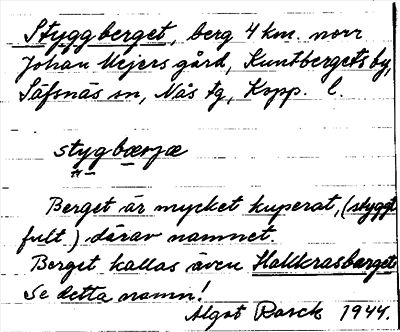 Styggberget, berg 4 km. norr
Johan Mejers gård, Kuntbergets by,
Säfsnäs sn, Nås tg, Kopp. l.
stygbærjæ
Berget är mycket kuperat, (styggt
fult) därav namnet.
Berget kallas även Hakkrasberget
Se detta namn!
Algot Rosck 1944.